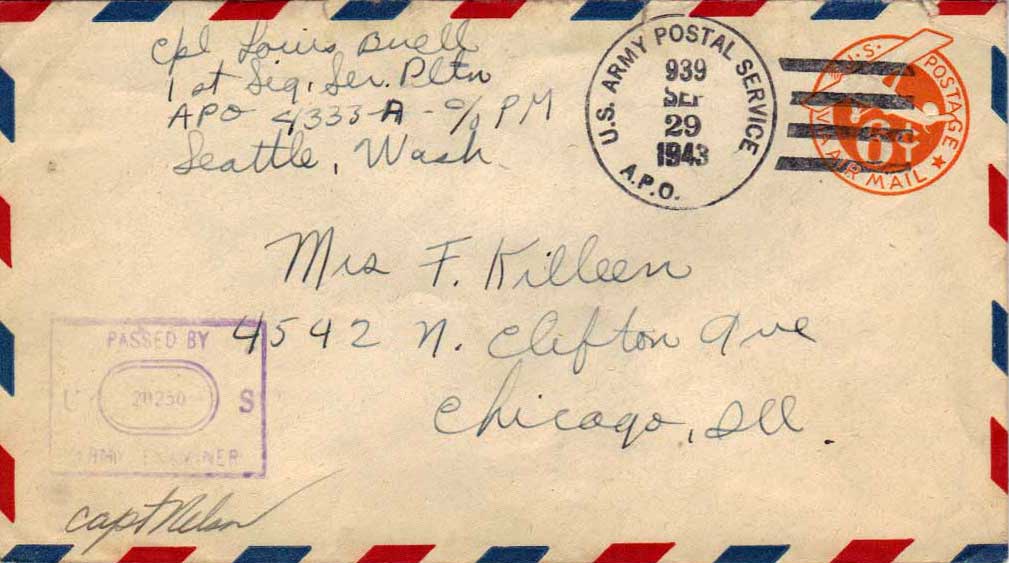 Cpl Louis Buell
1st Sig. Ser. Pltn
APO 4333-A - c/o PM
Seattle, Wash.
U.S. ARMY POSTAL SERVICE
939
SEP
29
1943
A.P.O.
U.S. POSTAGE
6¢
VIA AIR MAIL
Mrs F. Killeen
4542 N. Clifton Ave
Chicago, Ill.
PASSED BY
U 20250 S
ARMY EXAMINER
Capt Nelson